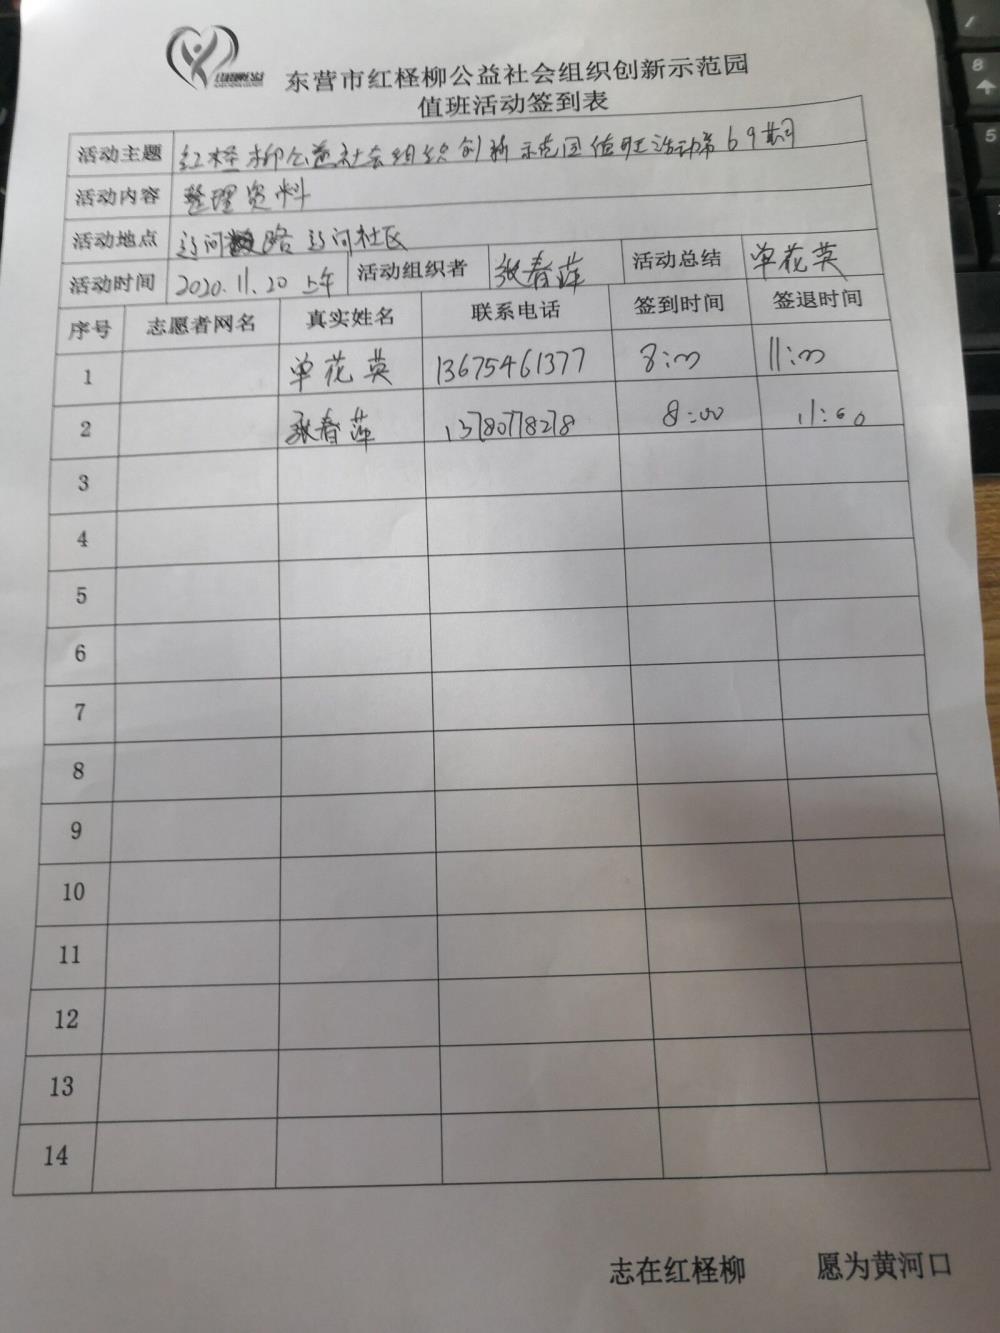 东营市红柽柳公益社会组织创新示范园
值班活动签到表
活动主题 红柽柳公益社会组织创新示范园值班活动第69期
活动内容 整理资料
活动地点 路 社区
活动时间 2020.11.20 上午 活动组织者 张春萍 活动总结 单花英
序号 志愿者网名 真实姓名 联系电话 签到时间 签退时间
1 单花英 13675461377 8:00 11:00
2 张春萍 8:00 11:00
3
4
5
6
7
8
9
10
11
12
13
14
志在红柽柳 愿为黄河口